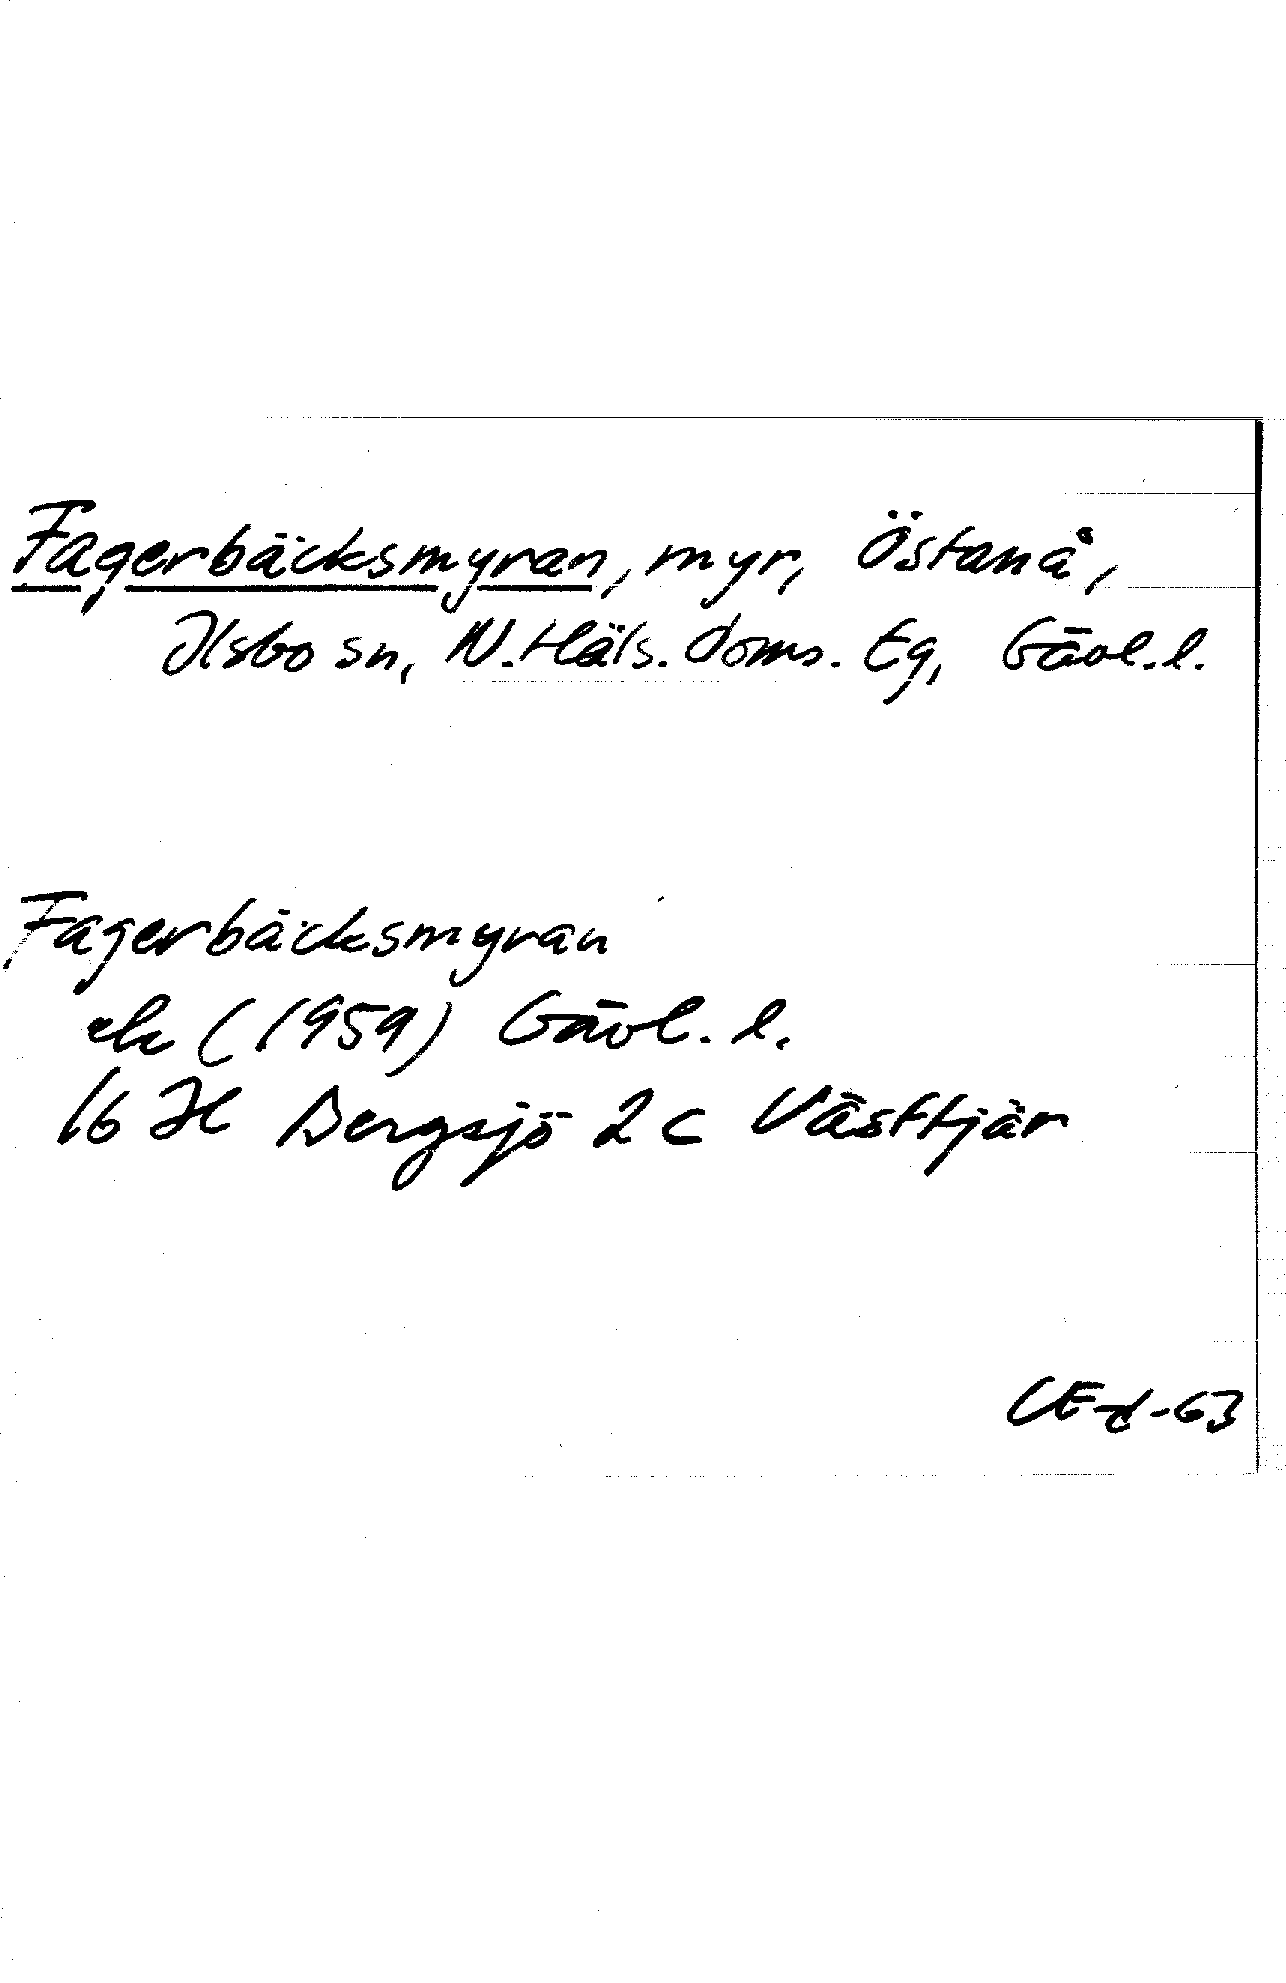 Fagerbäcksmyran, myr, Östanå,
Ilsbo sn, N. Häls. doms. tg, Gävl. l.
Fagerbäcksmyran
ek (1959) Gävl. l.
16 H Bergsjö 2 c Västtjär
CEd-63